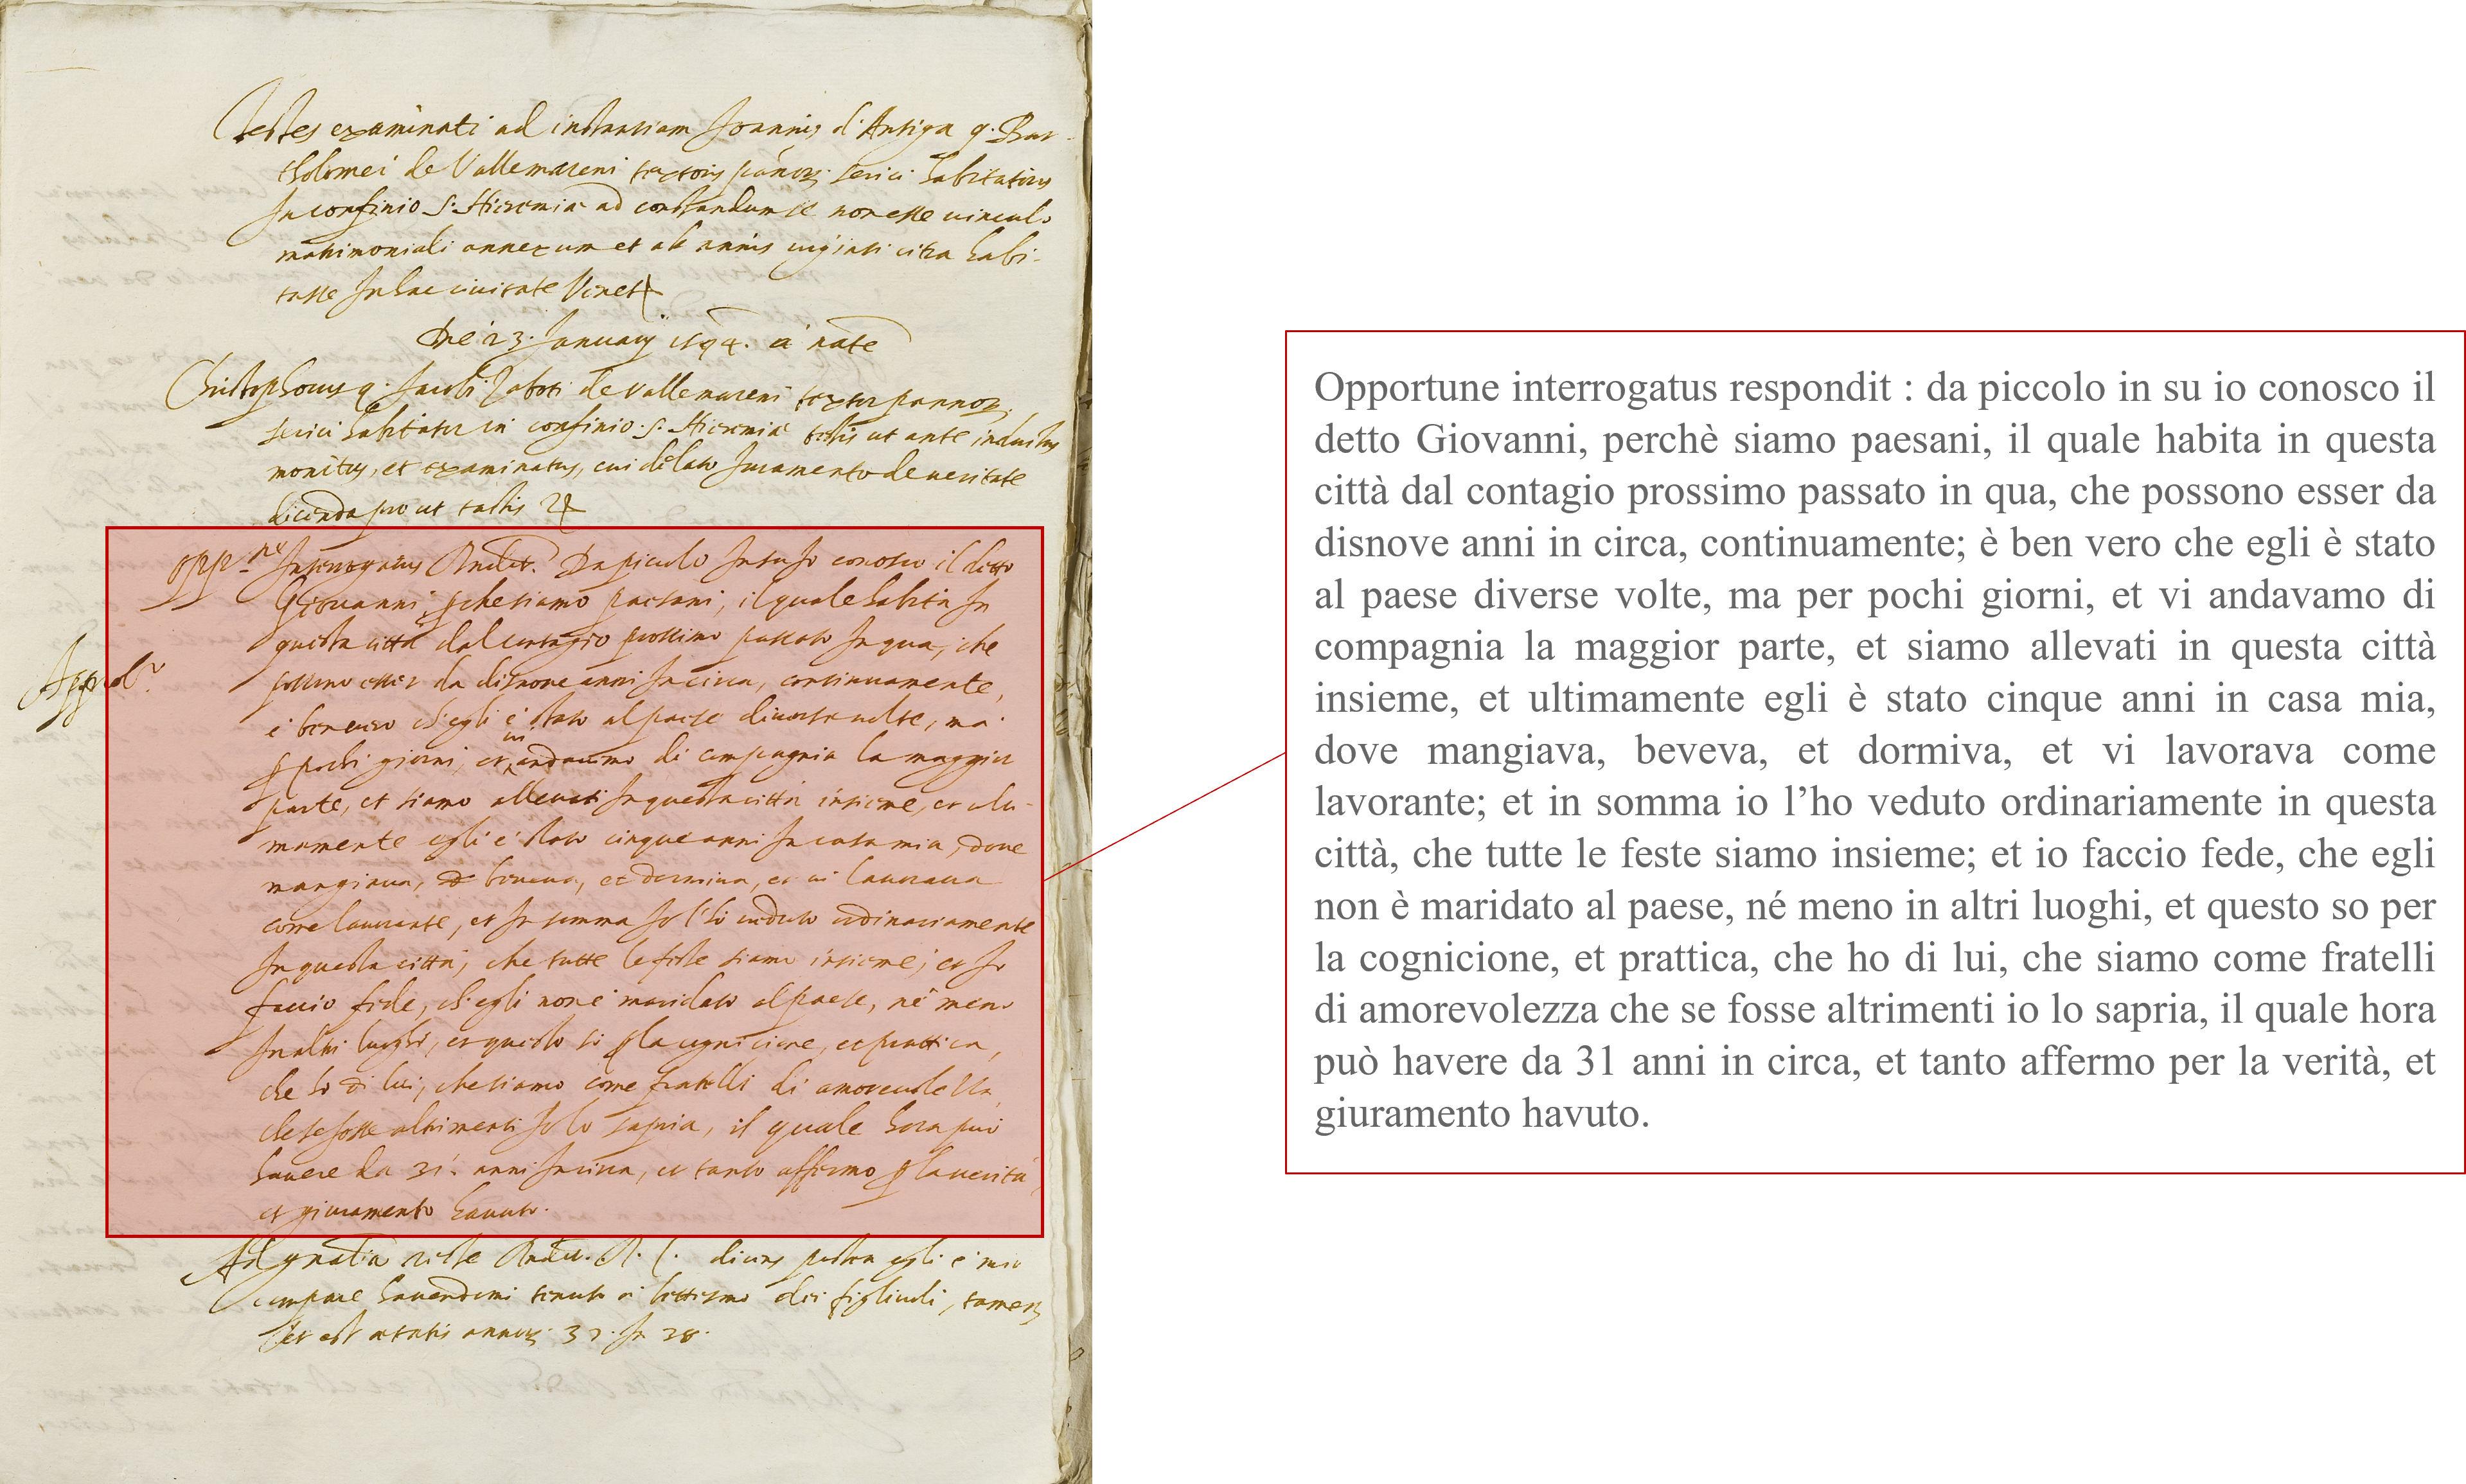 Testes examinati ad instantiam Joannis d'Antiga q. Bar-
tholomei de Vallemareni textoris pannorum serici habitatoris
In confinio S. Hieremiæ ad constandum se non esse vinculo
matrimoniali annexum et ab annis viginti citra habi-
tasse In hac civitate Venet
Die 23. January 1594. a nate
Christophorus q. Jacobi de Vallemareni textor pannorum
serici habitator in confinio S. Hieremiæ testis ut ante inductus
monitus, et examinatus, cui delato Juramento de veritate
dicenda prout tactis
opp.ne Interrogatus Rndit. Da piccolo In su Io conosco il detto
Giovanni, p che siamo paesani, il quale habita In
questa città dal contagio prossimo passato In qua, che
possono esser da disnove anni In circa, continuamente,
è ben vero ch'egli è stato al paese diverse volte, ma
p pochi giorni, et vi andavamo di compagnia la maggior
parte, et siamo allevati In questa città insieme, et ulti-
mamente egli è stato cinque anni In casa mia, dove
mangiava, beveva, et dormiva, et vi lavorava
come lavorante, et In somma Io l'ho veduto ordinariamente
In questa città, che tutte le feste siamo insieme; et Io
faccio fede, ch'egli non è maridato al paese, né meno
In altri luoghi, et questo so p la cognicione, et prattica,
che ho di lui, che siamo come fratelli di amorevolezza,
che se fosse altrimenti Io lo sapria, il quale hora può
havere da 31. anni In circa, et tanto affermo p la verità,
et giuramento havuto.
Ad gnalia recte Rndit. dicens però egli è mio
compare havendomi tenuto a battesmo dei figliuoli, tamen
et est ætatis annorum 37. In 38.
Opportune interrogatus respondit : da piccolo in su io conosco il
detto Giovanni, perchè siamo paesani, il quale habita in questa
città dal contagio prossimo passato in qua, che possono esser da
disnove anni in circa, continuamente; è ben vero che egli è stato
al paese diverse volte, ma per pochi giorni, et vi andavamo di
compagnia la maggior parte, et siamo allevati in questa città
insieme, et ultimamente egli è stato cinque anni in casa mia,
dove mangiava, beveva, et dormiva, et vi lavorava come
lavorante; et in somma io l’ho veduto ordinariamente in questa
città, che tutte le feste siamo insieme; et io faccio fede, che egli
non è maridato al paese, né meno in altri luoghi, et questo so per
la cognicione, et prattica, che ho di lui, che siamo come fratelli
di amorevolezza che se fosse altrimenti io lo sapria, il quale hora
può havere da 31 anni in circa, et tanto affermo per la verità, et
giuramento havuto.